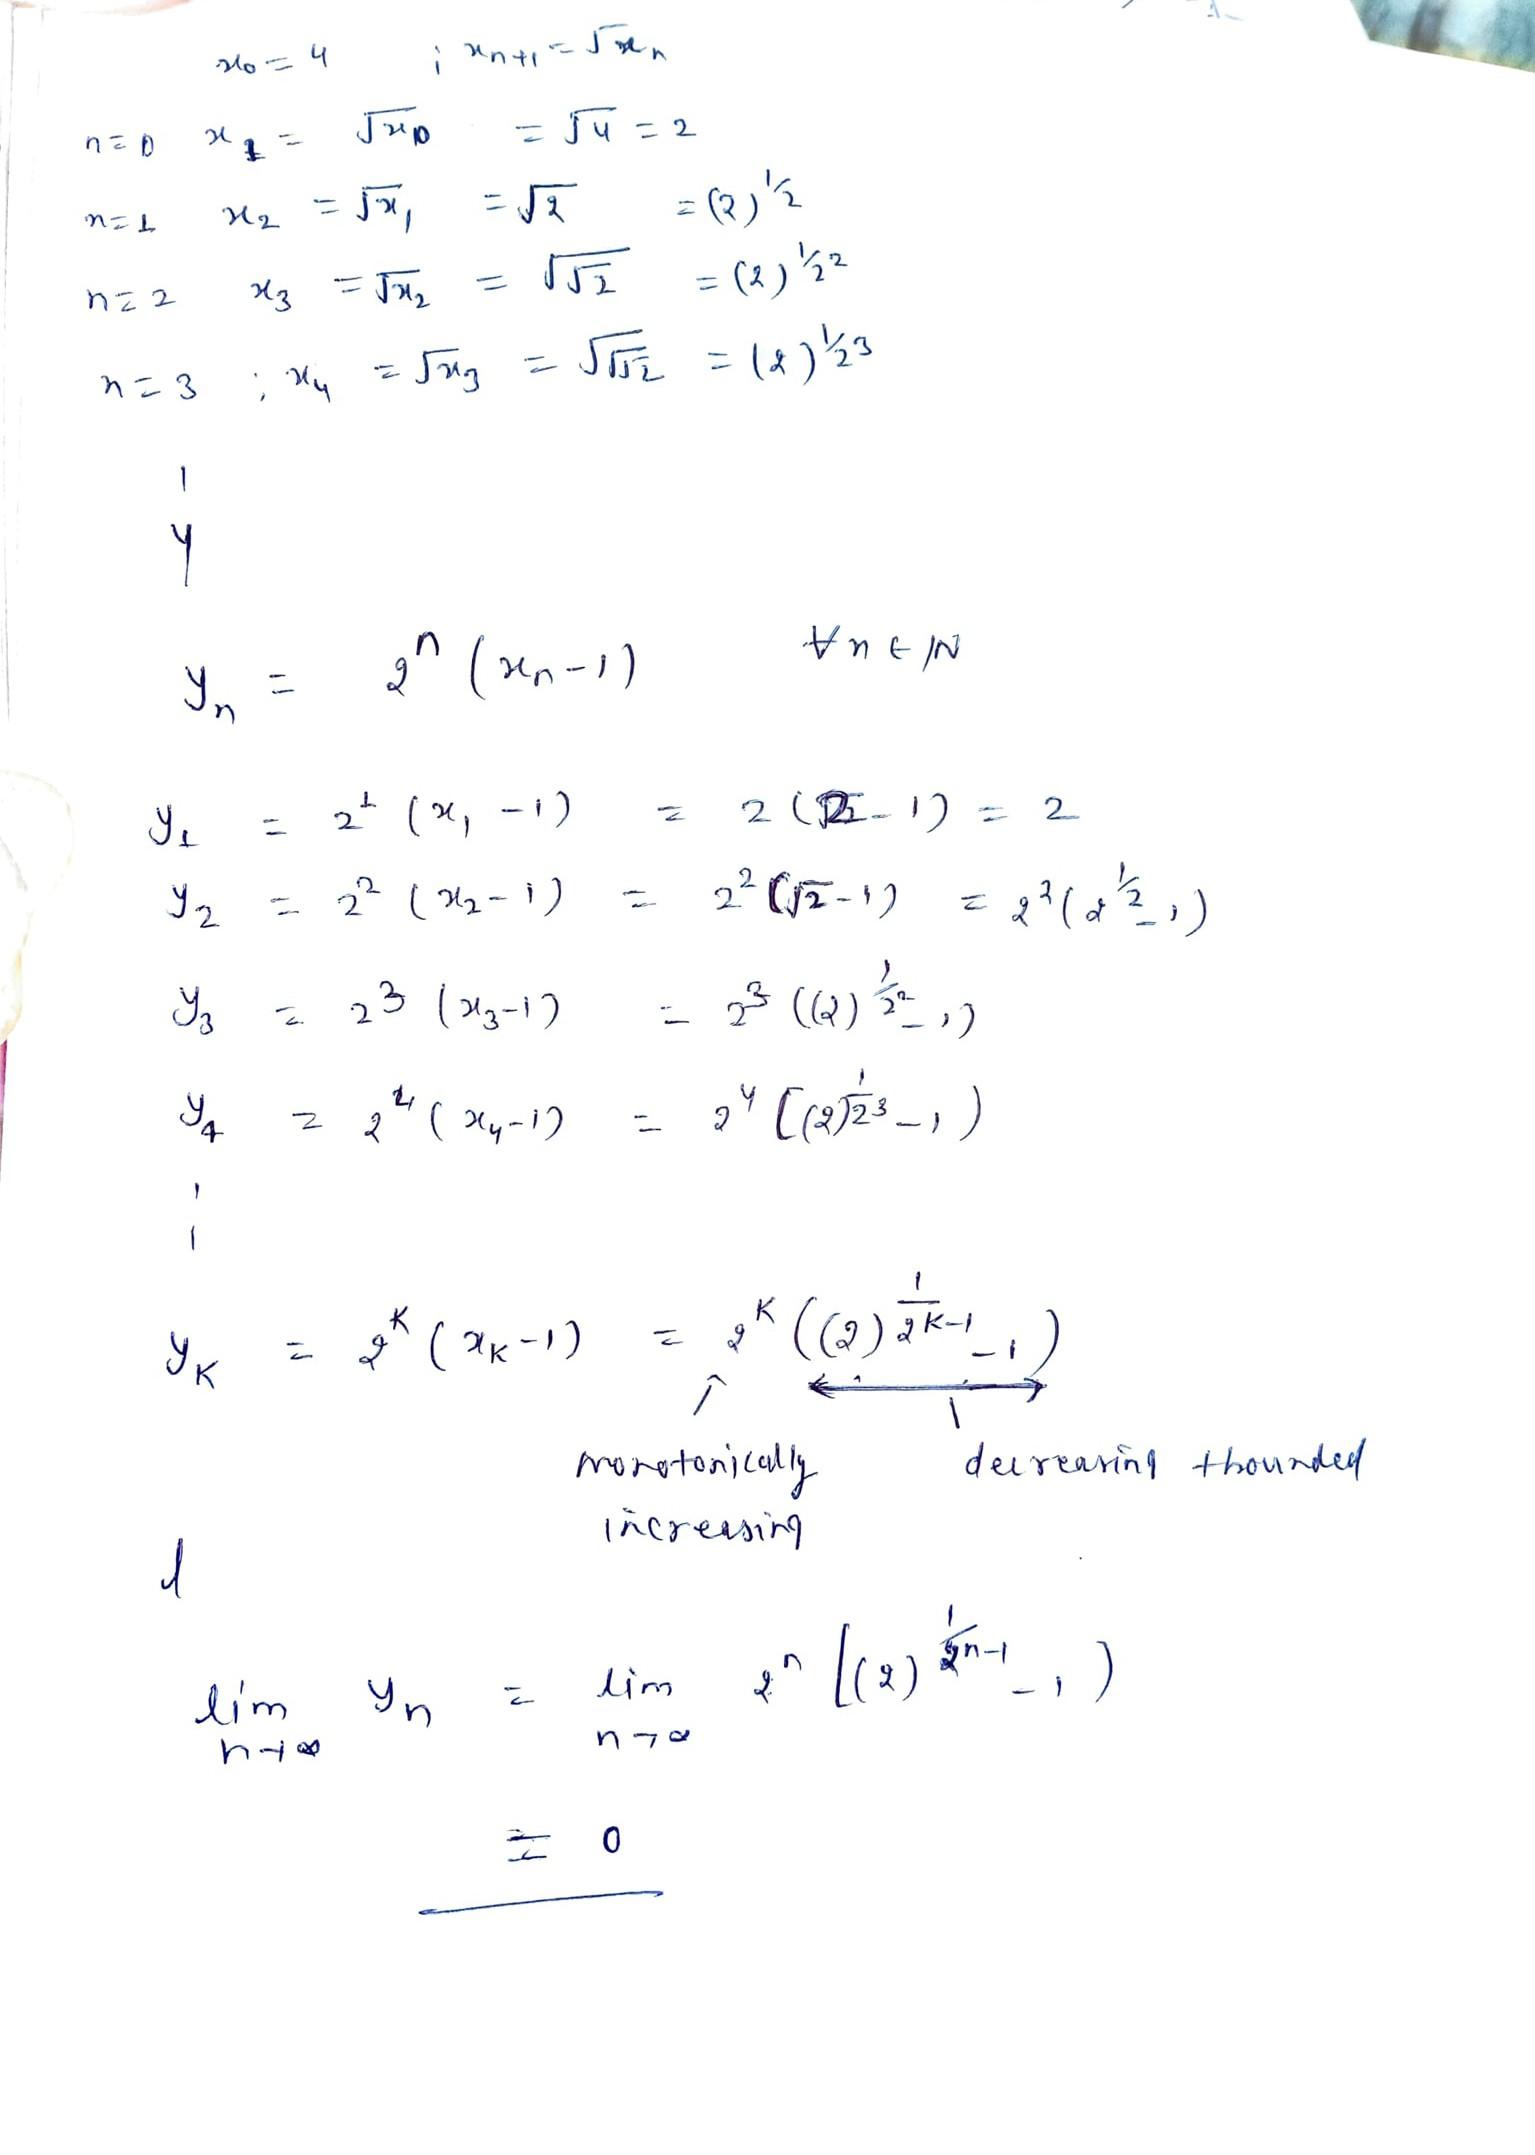 x₀ = 4 ; xₙ₊₁ = √xₙ
n=0 x₁ = √x₀ = √4 = 2
n=1 x₂ = √x₁ = √2 = (2)^1/2
n=2 x₃ = √x₂ = √√2 = (2)^1/2²
n=3 ; x₄ = √x₃ = √√√2 = (2)^1/2³
y
yₙ = 2ⁿ (xₙ-1) ∀n∈ℕ
y₁ = 2¹ (x₁ -1) = 2 (2-1) = 2
y₂ = 2² (x₂-1) = 2² (√2-1) = 2²(2^1/2 -1)
y₃ = 2³ (x₃-1) = 2³ ((2)^1/2² -1)
y₄ = 2⁴ (x₄-1) = 2⁴ [(2)^1/2³ -1)
yK = 2^K (xK-1) = 2^K ((2)^1/2^K-1 -1)
↑
monotonically decreasing +bounded
increasing
lim yₙ = lim 2ⁿ [(2)^1/2^n-1 -1)
n→∞ n→∞
= 0